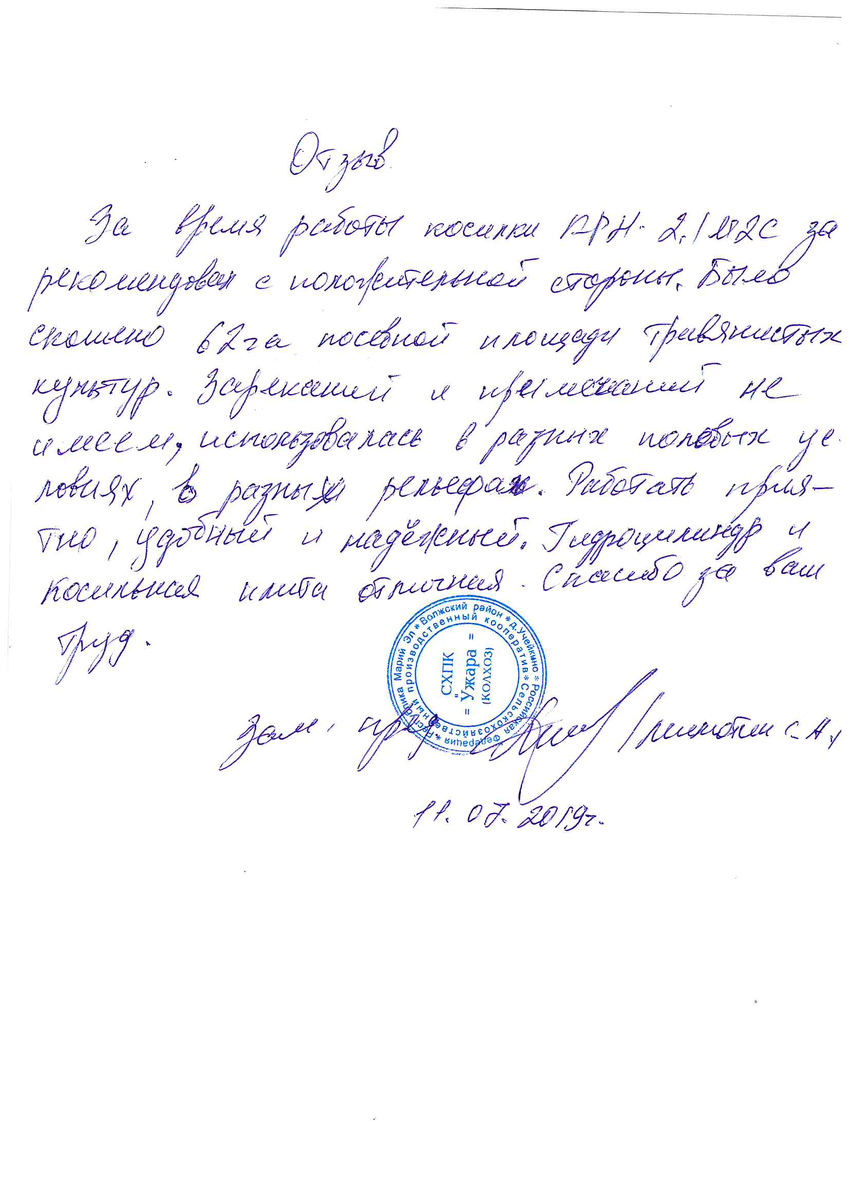 Отзыв.
За время работы косилки КРН-2,1М2С за
рекомендовал с положительной стороны. Было
скошено 62га посевной площади травянистых
культур. Нареканий и примечаний не
имеем, использовалась в разных полевых ус
ловиях, в разных рельефах. Работать прия-
тно, удобный и надёжный. Гидроцилиндр и
косильная плита отличная. Спасибо за ваш
труд.
Российская Федерация * Республика Марий Эл * Волжский район * д. Учейкино *
Сельскохозяйственный производственный кооператив *
СХПК
"Ужара"
(КОЛХОЗ)
Зам. пред.
С.А.
11.07.2019г.